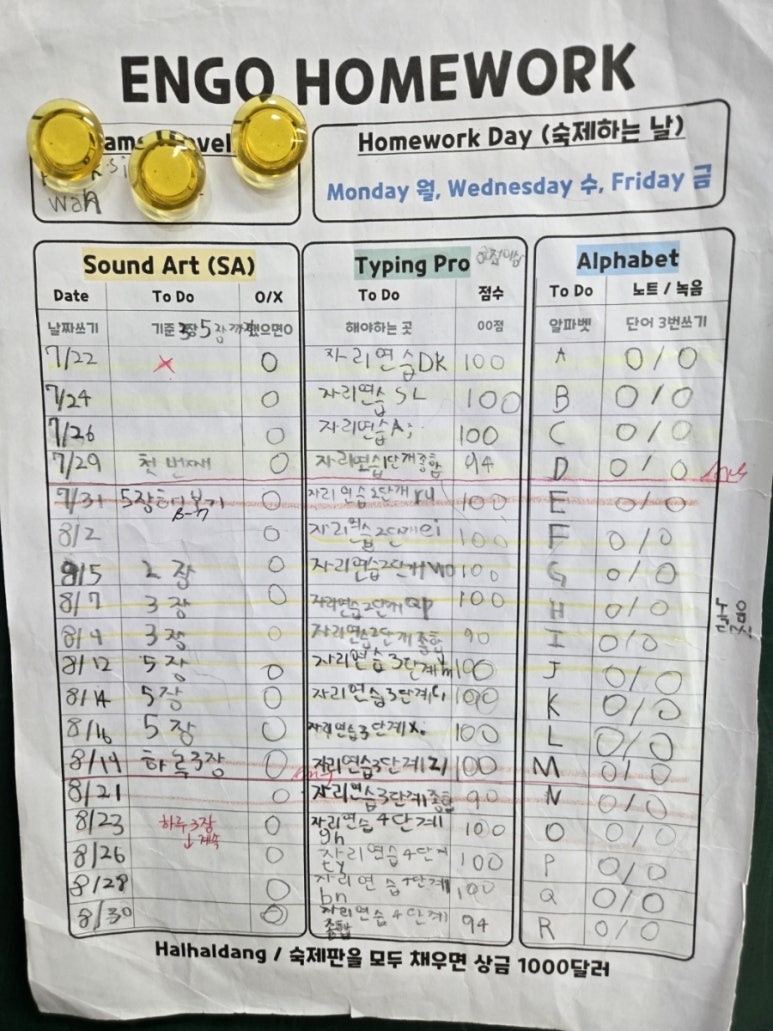 ENGO HOMEWORK
Homework Day (숙제하는 날)
wan
Monday 월, Wednesday 수, Friday 금
Sound Art (SA) Typing Pro Alphabet
Date To Do O/X To Do 점수 To Do 노트 / 녹음
날짜쓰기 기준 5장 했으면O 해야하는 곳 00점 알파벳 단어 3번쓰기
7/22 X O 자리연습DK 100 A O/O
7/24 O 자리연습 SL 100 B O/O
7/26 O 자리연습A; 100 C O/O
7/29 첫 번째 O 자리연습1단계종합 94 D O/O
7/31 5장 O 자리연습2단계ru 100 E O/O
8/2 O 자리연습2단계ei 100 F O/O
8/5 2장 O 자리연습2단계wo 100 G O/O
8/7 3장 O 자리연습2단계qp 100 H O/O
녹음
8/9 3장 O 자리연습2단계종합 90 I O/O
8/12 5장 O 자리연습3단계 100 J O/O
8/14 5장 O 자리연습3단계 100 K O/O
8/16 5장 O 자리연습3단계x. 100 L O/O
8/19 하루3장 O 자리연습3단계z/ 100 M O/O
8/21 O 자리연습3단계종합 90 N O/O
8/23 하루3장 O 자리연습4단계 gh 100 O O/O
↓계속
8/26 O 자리연습4단계 ty 100 P O/O
8/28 O 자리연습4단계 bn 100 Q O/O
8/30 O 자리연습4단계 종합 94 R O/O
Halhaldang / 숙제판을 모두 채우면 상금 1000달러